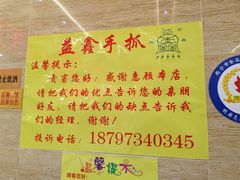 益鑫手抓
温馨提示:
贵宾您好:感谢惠顾本店,
请把我们的优点告诉您的亲朋
好友,请把我们的缺点告诉我
们的经理,谢谢!
投诉电话:18797340345
温馨提示